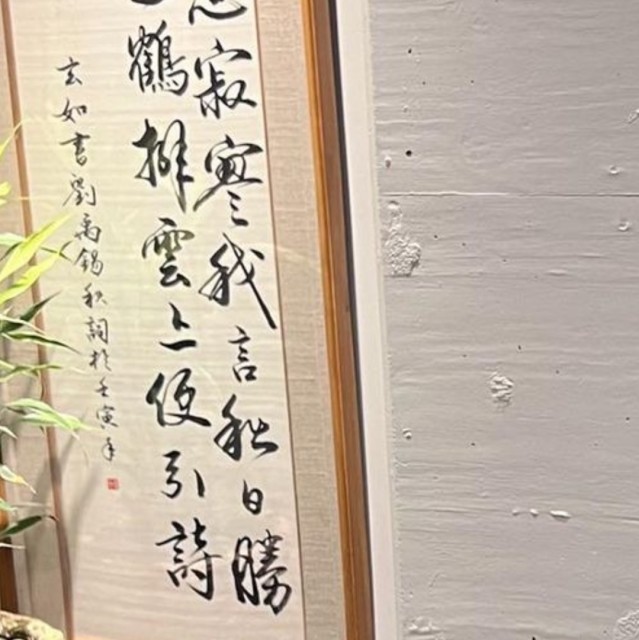 寂寥我言秋日勝
鶴排雲上便引詩
玄如書劉禹錫秋詞於壬寅年